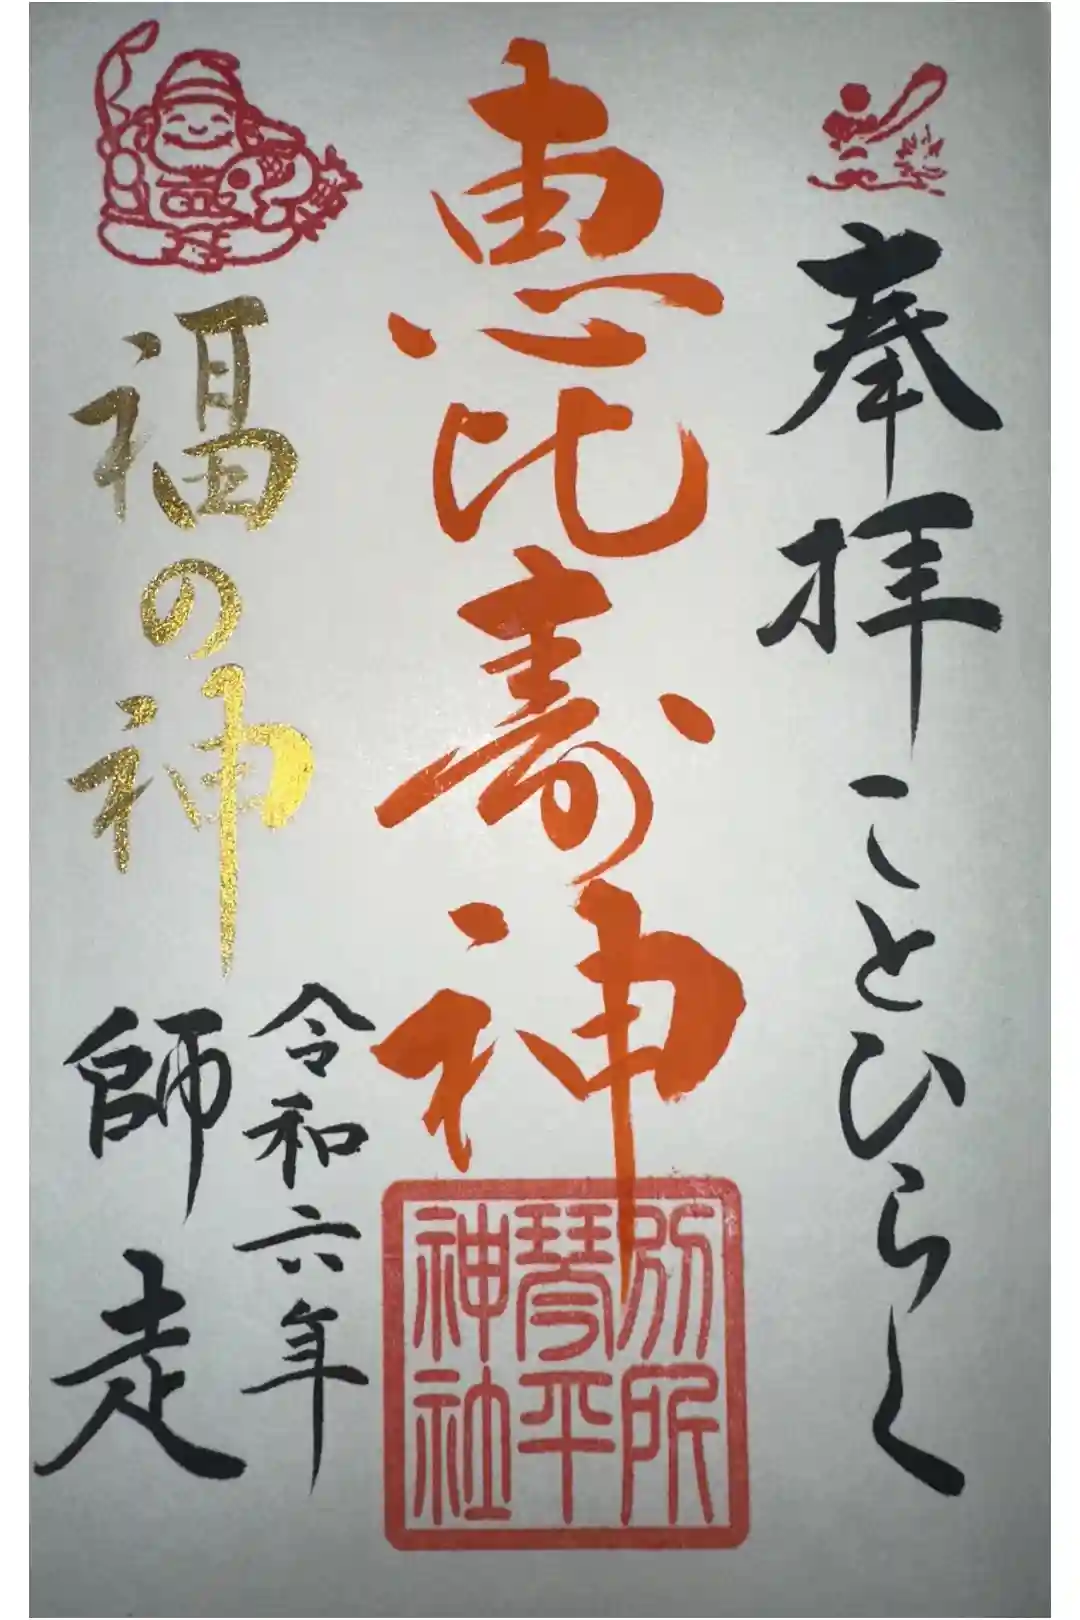 奉拝
ことひらく
恵比寿神
別所
琴平
神社
福の神
令和六年
師走